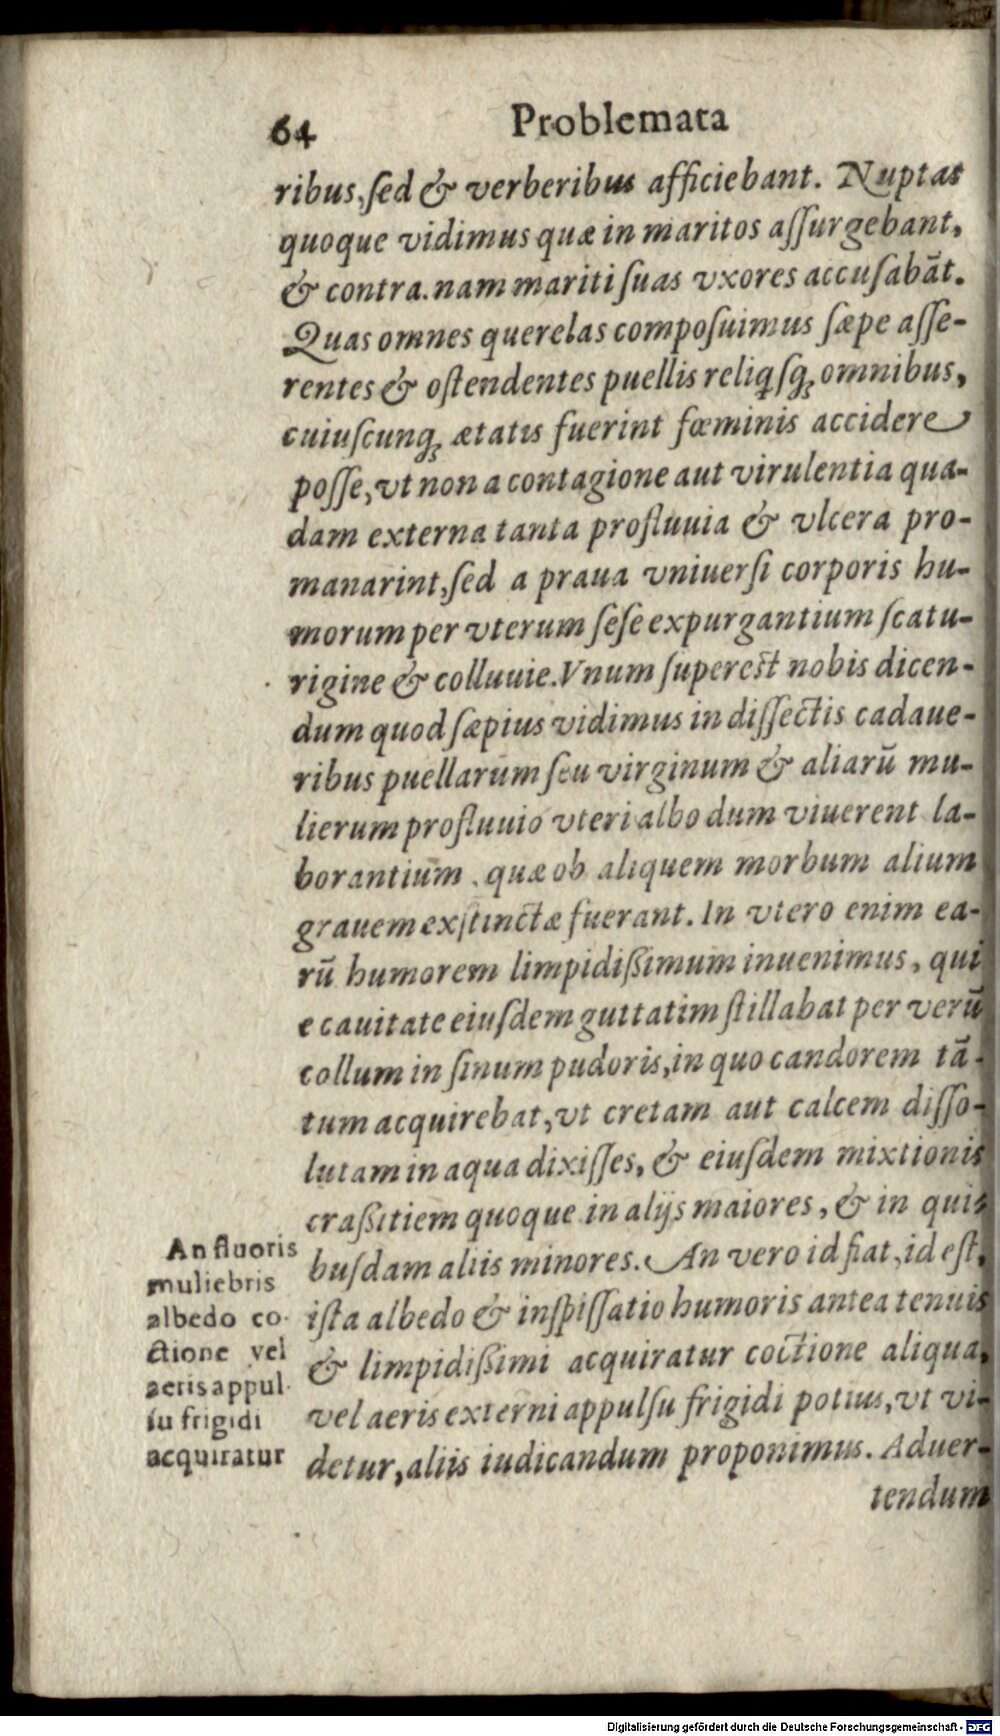 64 Problemata
ribus, ſed & verberibus afficiebant. Nuptas
quoque vidimus quæ in maritos aſſurgebant,
& contra. nam mariti ſuas vxores accuſabāt.
Quas omnes querelas compoſuimus ſæpe aſſe-
rentes & oſtendentes puellis reliqſꝗ omnibus,
cuiuſcunꝗ ætatis fuerint fœminis accidere
poſſe, vt non a contagione aut virulentia qua-
dam externa tanta profluuia & vlcera pro-
manarint, ſed a praua vniuerſi corporis hu-
morum per vterum ſeſe expurgantium ſcatu-
rigine & colluuie. Vnum ſupereſt nobis dicen-
dum quod ſæpius vidimus in diſſectis cadaue-
ribus puellarum ſeu virginum & aliarū mu-
lierum profluuio vteri albo dum viuerent la-
borantium, quæ ob aliquem morbum alium
grauem exſtinctæ fuerant. In vtero enim ea-
rū humorem limpidißimum inuenimus, qui
e cauitate eiuſdem guttatim ſtillabat per verū
collum in ſinum pudoris, in quo candorem tā-
tum acquirebat, vt cretam aut calcem diſſo-
lutam in aqua dixiſſes, & eiuſdem mixtionis
craßitiem quoque in alijs maiores, & in qui-
buſdam aliis minores. An vero id fiat, id eſt,
iſta albedo & inſpiſſatio humoris antea tenuis
& limpidißimi acquiratur coctione aliqua,
vel aeris externi appulſu frigidi potius, vt vi-
detur, aliis iudicandum proponimus. Aduer-
tendum
An fluoris
muliebris
albedo co-
ctione vel
aeris appul-
ſu frigidi
acquiratur
Digitalisierung gefördert durch die Deutsche Forschungsgemeinschaft - DFG